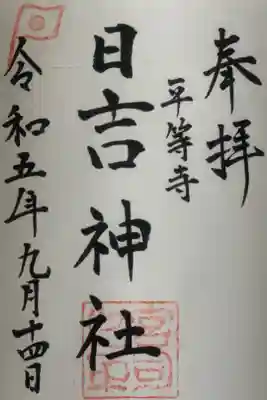 奉拝
平等寺
日吉神社
令和五年九月十四日